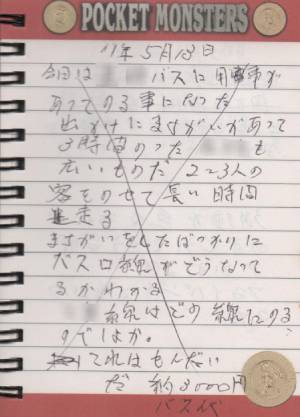 POCKET MONSTERS
11年5月18日
今日は バスに用事が
あってのる事になった
出かけにまちがいがあって
3時間のった も
広いものだ 2~3人の
客をのせて長い時間
走る
まちがいをしたばっかりに
バス口線がどうなって
るかわかる
線はどの線にのる
のでしょか。
これはもんだい
だ 約3000円
バス代